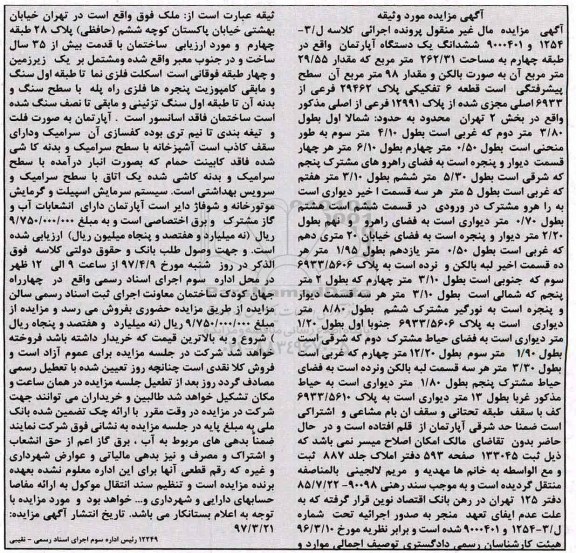 آگهی مزایده مورد وثیقه
آگهی مزایده مال غیر منقول پرونده اجرائی کلاسه ل/۳-
۱۲۵۴ و ۹۰۰۰۴۰۱ ششدانگ یک دستگاه آپارتمان واقع در
طبقه چهارم به مساحت ۲۶۲/۳۱ متر مربع که مقدار ۲۹/۵۵
متر مربع آن به صورت بالکن و مقدار ۹۸ متر مربع آن سطح
پیشرفتگی است قطعه ۶ تفکیکی پلاک ۲۹۴۶۲ فرعی از
۶۹۳۳ اصلی مجزی شده از پلاک ۱۲۹۹۱ فرعی از اصلی مذکور
واقع در بخش ۲ تهران محدود به حدود: شمالا اول بطول
۳/۸۰ متر دوم که غربی است بطول ۴/۱۰ متر سوم به طور
منحنی است بطول ۰/۵۰ متر چهارم بطول ۶/۱۰ متر هر چهار
قسمت دیوار و پنجره است به فضای راهرو های مشترک پنجم
که شرقی است بطول ۵/۳۰ متر ششم بطول ۳/۱۰ متر هفتم
که غربی است بطول ۵ متر هر سه قسمت اخیر دیواری است
به راهرو مشترک در ورودی در قسمت ششم است هشتم
بطول ۰/۷۰ متر دیواری است به فضای راهرو و نهم بطول
۲/۲۰ متر دیوار و پنجره است به فضای خیابان ۲۰ متری دهم
که غربی است بطول ۰/۵۰ متر یازدهم بطول ۱/۹۵ متر هر
ده قسمت اخیر لبه بالکن و نرده است به پلاک ۶۹۳۳/۵۶۰۶
سوم که جنوبی است بطول ۳/۱۰ متر چهارم که بطول ۲ متر
پنجم که شمالی است بطول ۳/۱۰ متر هر سه قسمت دیوار
و پنجره است به نورگیر مشترک ششم بطول ۸/۸۰ متر
دیواری است به پلاک ۶۹۳۳/۵۶۰۶ جنوبا اول بطول ۱/۲۰
متر دیواری است به فضای حیاط مشترک دوم که شرقی است
بطول ۱/۹۰ متر سوم بطول ۱۲/۲۰ متر چهارم که غربی است
بطول ۳/۳۰ متر هر سه قسمت لبه بالکن ونرده است به فضای
حیاط مشترک پنجم بطول ۱/۸۰ متر دیواری است به حیاط
مذکور غربا بطول ۱۳ متر دیواری است به پلاک ۶۹۳۳/۵۶۱۰
کف با سقف طبقه تحتانی و سقف ان بام مشاعی و اشتراکی
است ضمنا حد شرقی آپارتمان از قلم افتاده است و در حال
حاضر بدون تقاضای مالک امکان اصلاح میسر نمی باشد که
ذیل ثبت ۱۳۳۰۴۵ صفحه ۵۹۳ دفتر املاک جلد ۸۸۷ ثبت
و مع الواسطه به خانم ها مهدیه و مریم لالجینی بالمناصفه
منتقل گردیده است و به موجب سند رهنی ۹۰۰۹۸- ۸۵/۷/۲۲
دفتر ۱۲۵ تهران در رهن بانک اقتصاد نوین قرار گرفته که به
علت عدم ایفای تعهد منجر به صدور اجرائیه تحت شماره
ل/۳-۱۲۵۴ و ۹۰۰۰۴۰۱ شده است و برابر نظریه مورخ ۹۶/۳/۱۰
هیئت کارشناسان رسمی دادگستری توصیف اجمالی موارد و
ثیقه عبارت است از: ملک فوق واقع است در تهران خیابان
بهشتی خیابان پاکستان کوچه ششم (حافظی) پلاک ۲۸ طبقه
چهارم و مورد ارزیابی ساختمان با قدمت بیش از ۳۵ سال
ساخت و در جنوب معبر واقع شده ومشتمل بر یک زیرزمین
و چهار طبقه فوقانی است اسکلت فلزی نما تا طبقه اول سنگ
و مابقی کامپوزیت پنجره ها فلزی راه پله با سطح سنگ و
بدنه آن تا طبقه اول سنگ تزئینی و مابقی تا نصف سنگ شده
است ساختمان فاقد اسانسور است . آپارتمان به صورت فلت
و تیغه بندی تا نیم تری بوده کفسازی آن سرامیک ودارای
سقف کاذب است آشپزخانه با سطح سرامیک و بدنه کا شی
شده فاقد کابینت حمام که بصورت انبار درآمده با سطح
سرامیک و بدنه کاشی شده یک اتاق با سطح سرامیک و
سرویس بهداشتی است. سیستم سرمایش اسپیلت و گرمایش
موتورخانه و شوفاژ دایر است آپارتمان دارای انشعابات آب و
گاز مشترک و برق اختصاصی است و به مبلغ ۹/۷۵۰/۰۰۰/۰۰۰
ریال (نه میلیارد و هفتصد و پنجاه میلیون ریال) ارزیابی شده
است. و جهت وصول طلب بانک و حقوق دولتی کلاسه فوق
الذکر در روز شنبه مورخ ۹۷/۴/۹ از ساعت ۹ الی ۱۲ ظهر
در محل اداره سوم اجرای اسناد رسمی واقع در چهارراه
جهان کودک ساختمان معاونت اجرای ثبت اسناد رسمی سالن
مزایده از طریق مزایده حضوری بفروش می رسد و مزایده از
مبلغ ۹/۷۵۰/۰۰۰/۰۰۰ ریال (نه میلیارد و هفتصد و پنجاه ریال
) شروع و به بالاترین قیمت که خریدار داشته باشد فروخته
خواهد شد شرکت در جلسه مزایده برای عموم آزاد است و
فروش کلا نقدی است چنانچه روز تعیین شده با تعطیل رسمی
مصادف گردد روز بعد از تعطیل جلسه مزایده در همان ساعت و
مکان تشکیل خواهد شد طالبین و خریداران می توانند جهت
شرکت در مزایده در وقت مقرر با ارائه چک تضمین شده بانک
ملی به مبلغ پایه در جلسه مزایده به نشانی فوق شرکت نمایند
ضمناً بدهی های مربوط به آب ، برق گاز اعم از حق انشعاب
و اشتراک و مصرف و نیز بدهی مالیاتی و عوارض شهرداری
و غیره که رقم قطعی آنها برای این اداره معلوم نشده بعهده
برنده مزایده است و تنظیم سند انتقال موکول به ارائه مفاصا
حسابهای دارایی و شهرداری و... خواهد بود و مورد مزایده با
توجه به اعلام بستانکار می باشد. تاریخ انتشار آگهی مزایده:
۹۷/۳/۲۱
۱۲۲۴۹ رئیس اداره سوم اجرای اسناد رسمی - نقیبی